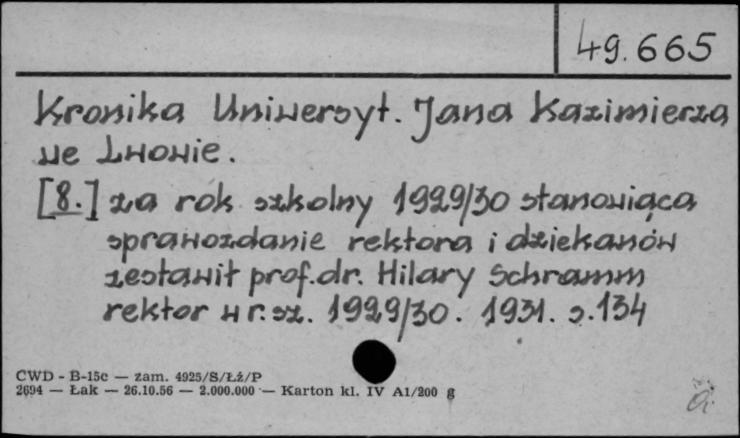 49.665
Kronika Uniwersyt. Jana Kazimierza
we Lwowie.
[8.] za rok szkolny 1929/30 stanowiąca
sprawozdanie rektora i dziekanów
zestawił prof. dr. Hilary Schramm
rektor w r. sz. 1929/30. 1931. s. 134
CWD - B-15c — zam. 4925/S/Łż/P
2694 — Łak — 26.10.56 — 2.000.000 — Karton kl. IV A1/200 g